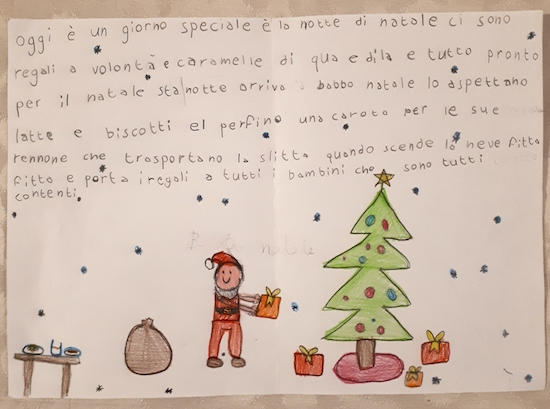 Oggi è un giorno speciale è la notte di natale ci sono
regali a volontà e caramelle di qua e di la e tutto pronto
per il natale sta notte arriva babbo natale lo aspettano
latte e biscotti el perfino una carota per le sue
rennone che trasportano la slitta quando scende la neve fitta
fitta e porta i regali a tutti i bambini che sono tutti
contenti.
natale